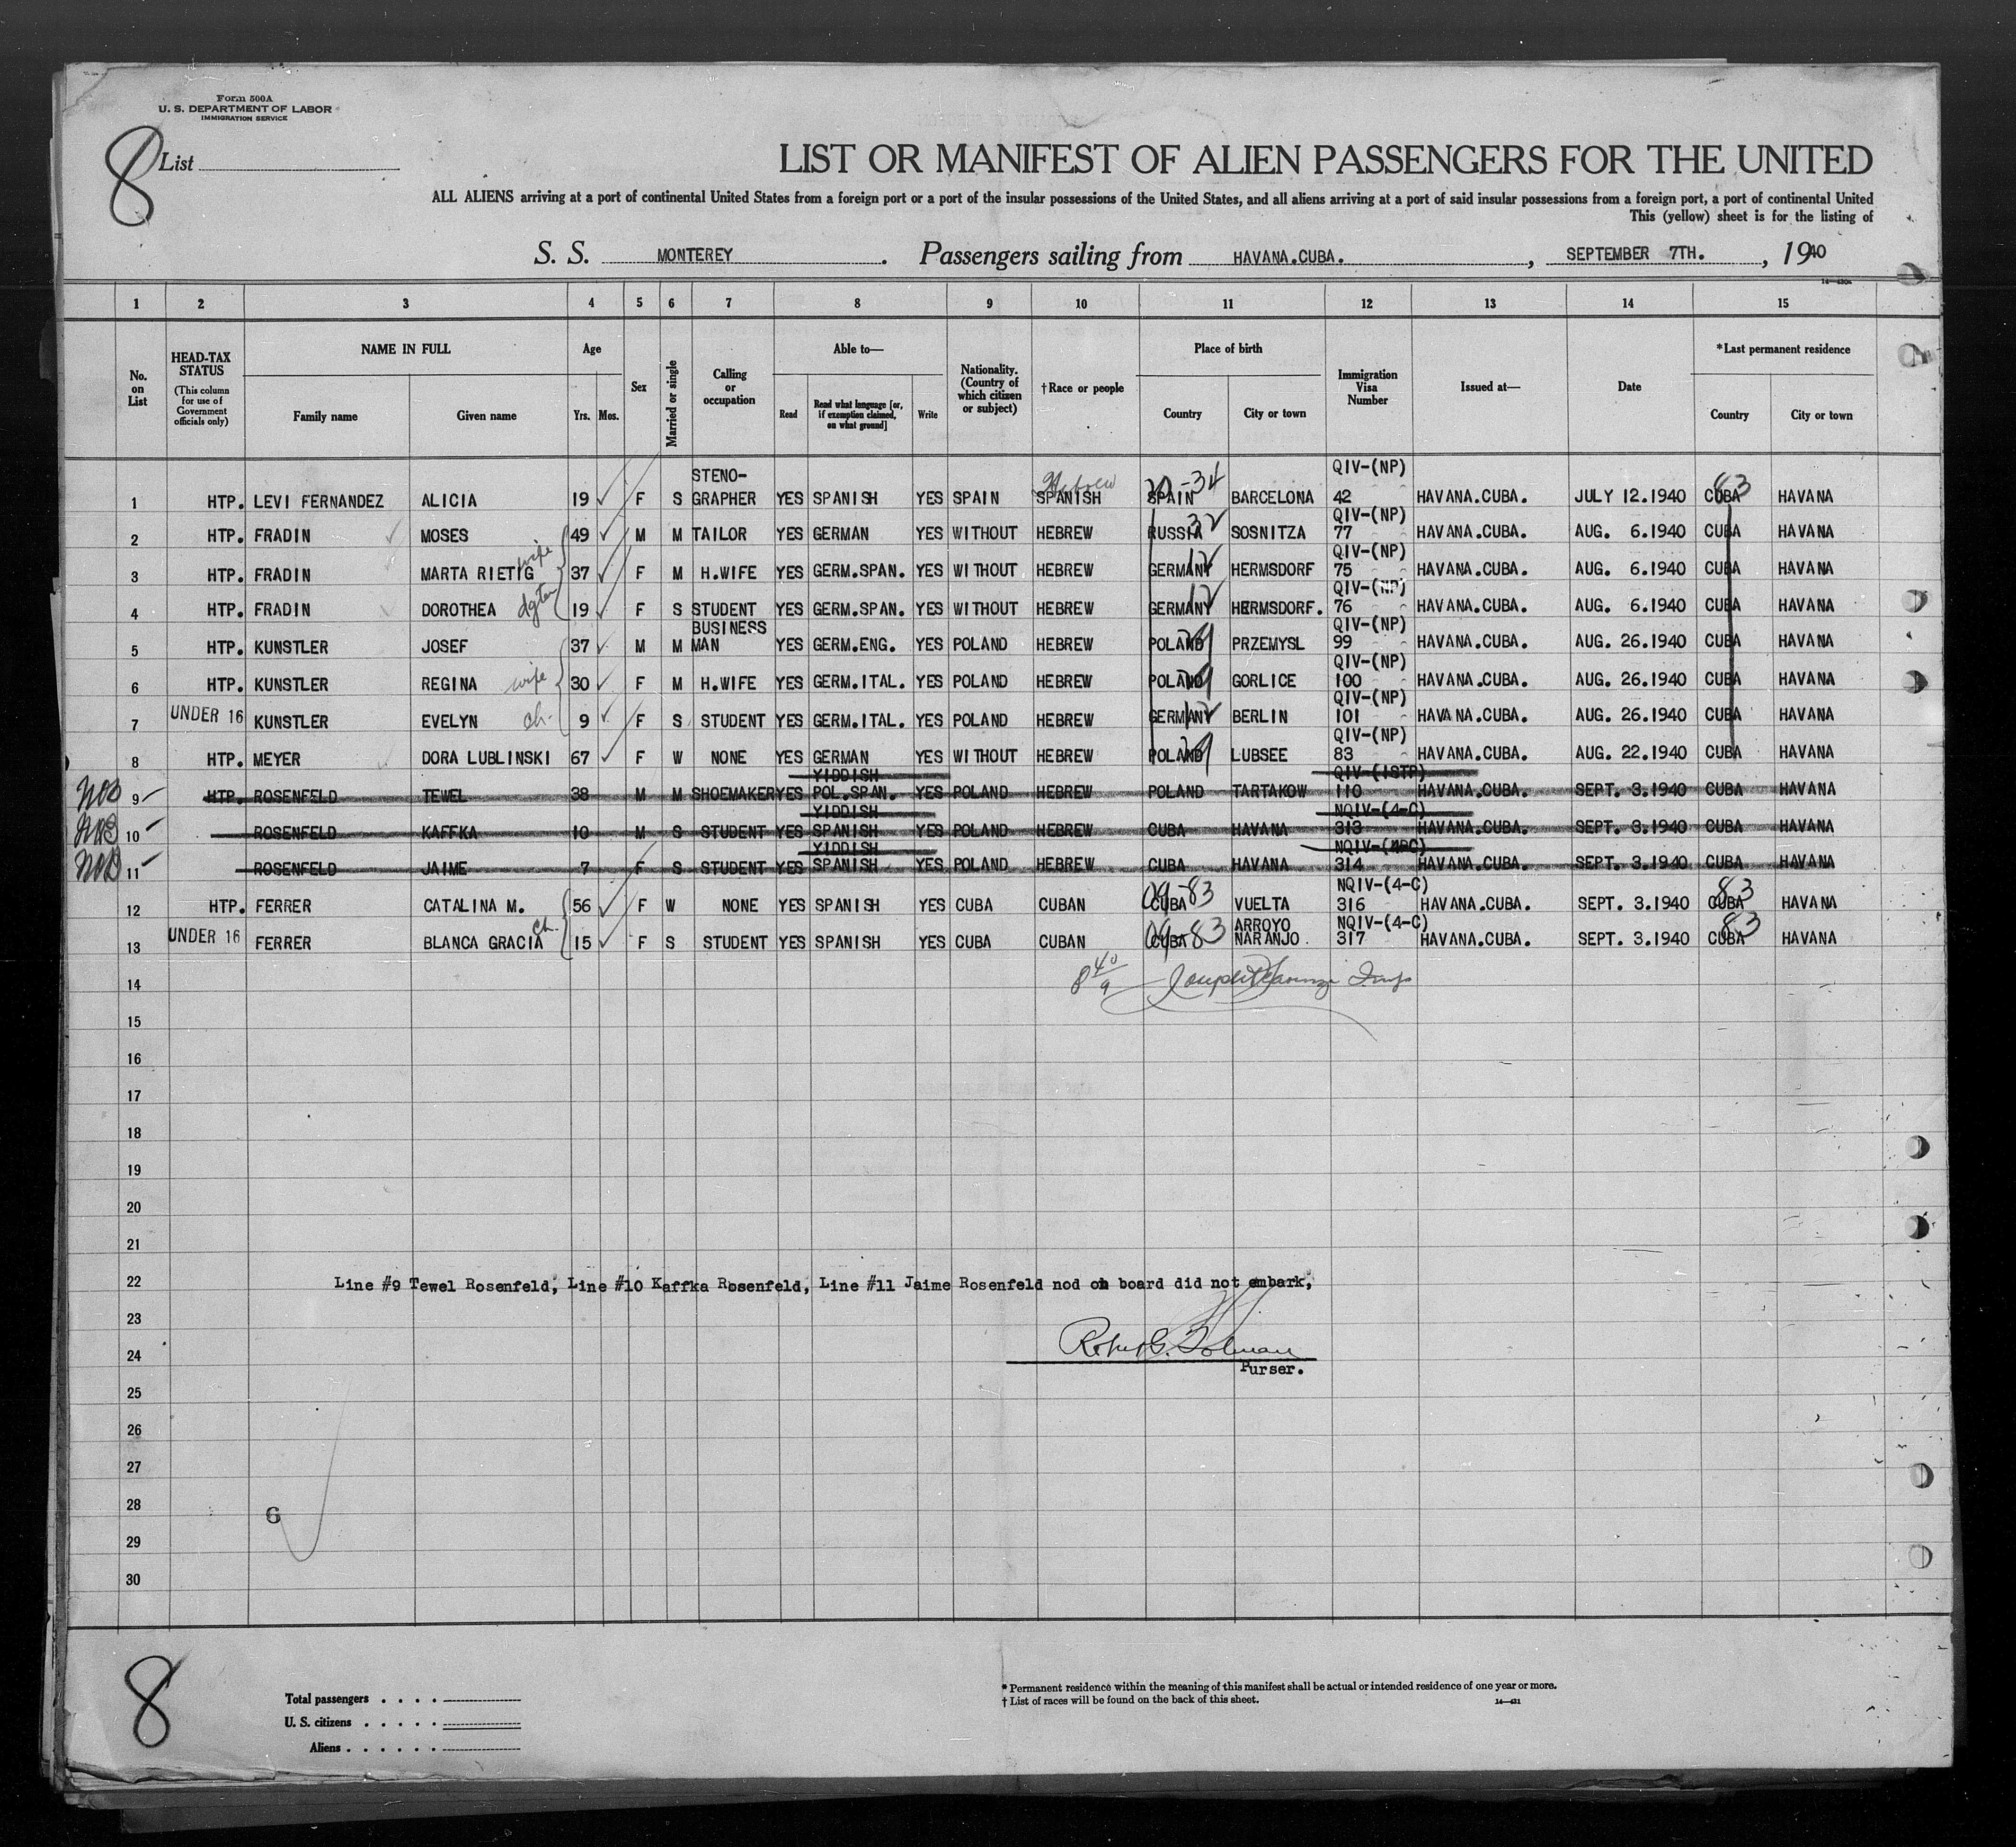 Form 500A
U. S. DEPARTMENT OF LABOR
IMMIGRATION SERVICE
8 List
LIST OR MANIFEST OF ALIEN PASSENGERS FOR THE UNITED
ALL ALIENS arriving at a port of continental United States from a foreign port or a port of the insular possessions of the United States, and all aliens arriving at a port of said insular possessions from a foreign port, a port of continental United
This (yellow) sheet is for the listing of
S. S. MONTEREY. Passengers sailing from HAVANA.CUBA. , SEPTEMBER 7TH. , 1940
1 2 3 4 5 6 7 8 9 10 11 12 13 14 15
No. on List HEAD-TAX STATUS (This column for use of Government officials only) NAME IN FULL Family name Given name Age Yrs. Mos. Sex Married or single Calling or occupation Able to— Read Read what language [or, if exemption claimed, on what ground] Write Nationality. (Country of which citizen or subject) †Race or people Place of birth Country City or town Immigration Visa Number Issued at— Date *Last permanent residence Country City or town
STENO- Hebrew -34 QIV-(NP) 83
1 HTP. LEVI FERNANDEZ ALICIA 19 F S GRAPHER YES SPANISH YES SPAIN SPANISH SPAIN BARCELONA 42 HAVANA.CUBA. JULY 12.1940 CUBA HAVANA
QIV-(NP)
2 HTP. FRADIN MOSES 49 M M TAILOR YES GERMAN YES WITHOUT HEBREW RUSSIA 32 SOSNITZA 77 HAVANA.CUBA. AUG. 6.1940 CUBA HAVANA
wife QIV-(NP)
3 HTP. FRADIN MARTA RIETIG 37 F M H.WIFE YES GERM.SPAN. YES WITHOUT HEBREW GERMANY 12 HERMSDORF 75 HAVANA.CUBA. AUG. 6.1940 CUBA HAVANA
QIV-(NP)
4 HTP. FRADIN DOROTHEA dgter 19 F S STUDENT YES GERM.SPAN. YES WITHOUT HEBREW GERMANY 12 HERMSDORF. 76 HAVANA.CUBA. AUG. 6.1940 CUBA HAVANA
BUSINESS QIV-(NP)
5 HTP. KUNSTLER JOSEF 37 M M MAN YES GERM.ENG. YES POLAND HEBREW POLAND PRZEMYSL 99 HAVANA.CUBA. AUG. 26.1940 CUBA HAVANA
QIV-(NP)
6 HTP. KUNSTLER REGINA wife 30 F M H.WIFE YES GERM.ITAL. YES POLAND HEBREW POLAND GORLICE 100 HAVANA.CUBA. AUG. 26.1940 CUBA HAVANA
QIV-(NP)
7 UNDER 16 KUNSTLER EVELYN ch. 9 F S STUDENT YES GERM.ITAL. YES POLAND HEBREW GERMANY 12 BERLIN 101 HAVANA.CUBA. AUG. 26.1940 CUBA HAVANA
QIV-(NP)
8 HTP. MEYER DORA LUBLINSKI 67 F W NONE YES GERMAN YES WITHOUT HEBREW POLAND LUBSEE 83 HAVANA.CUBA. AUG. 22.1940 CUBA HAVANA
YIDDISH QIV-(1STP)
NOB 9 HTP. ROSENFELD TEWEL 38 M M SHOEMAKER YES POL.SPAN. YES POLAND HEBREW POLAND TARTAKOW 110 HAVANA.CUBA. SEPT. 3.1940 CUBA HAVANA
YIDDISH NQIV-(4-C)
NOB 10 ROSENFELD KAFFKA 10 M S STUDENT YES SPANISH YES POLAND HEBREW CUBA HAVANA 313 HAVANA.CUBA. SEPT. 3.1940 CUBA HAVANA
YIDDISH
NOB 11 ROSENFELD JAIME 7 F S STUDENT YES SPANISH YES POLAND HEBREW CUBA HAVANA 314 HAVANA.CUBA. SEPT. 3.1940 CUBA HAVANA
09-83 NQIV-(4-C) 83
12 HTP. FERRER CATALINA M. 56 F W NONE YES SPANISH YES CUBA CUBAN CUBA VUELTA 316 HAVANA.CUBA. SEPT. 3.1940 CUBA HAVANA
ch. 09-83 ARROYO NQIV-(4-C) 83
13 UNDER 16 FERRER BLANCA GRACIA 15 F S STUDENT YES SPANISH YES CUBA CUBAN CUBA NARANJO. 317 HAVANA.CUBA. SEPT. 3.1940 CUBA HAVANA
14 8 40/9
15
16
17
18
19
20
21
22 Line #9 Tewel Rosenfeld, Line #10 Kaffka Rosenfeld, Line #11 Jaime Rosenfeld nod on board did not embark,
23
24 Robert G. Tolman
Purser.
25
26
27
28 6
29
30
8
Total passengers . . . .
U. S. citizens . . . . .
Aliens . . . . . .
* Permanent residence within the meaning of this manifest shall be actual or intended residence of one year or more.
† List of races will be found on the back of this sheet. 14—431